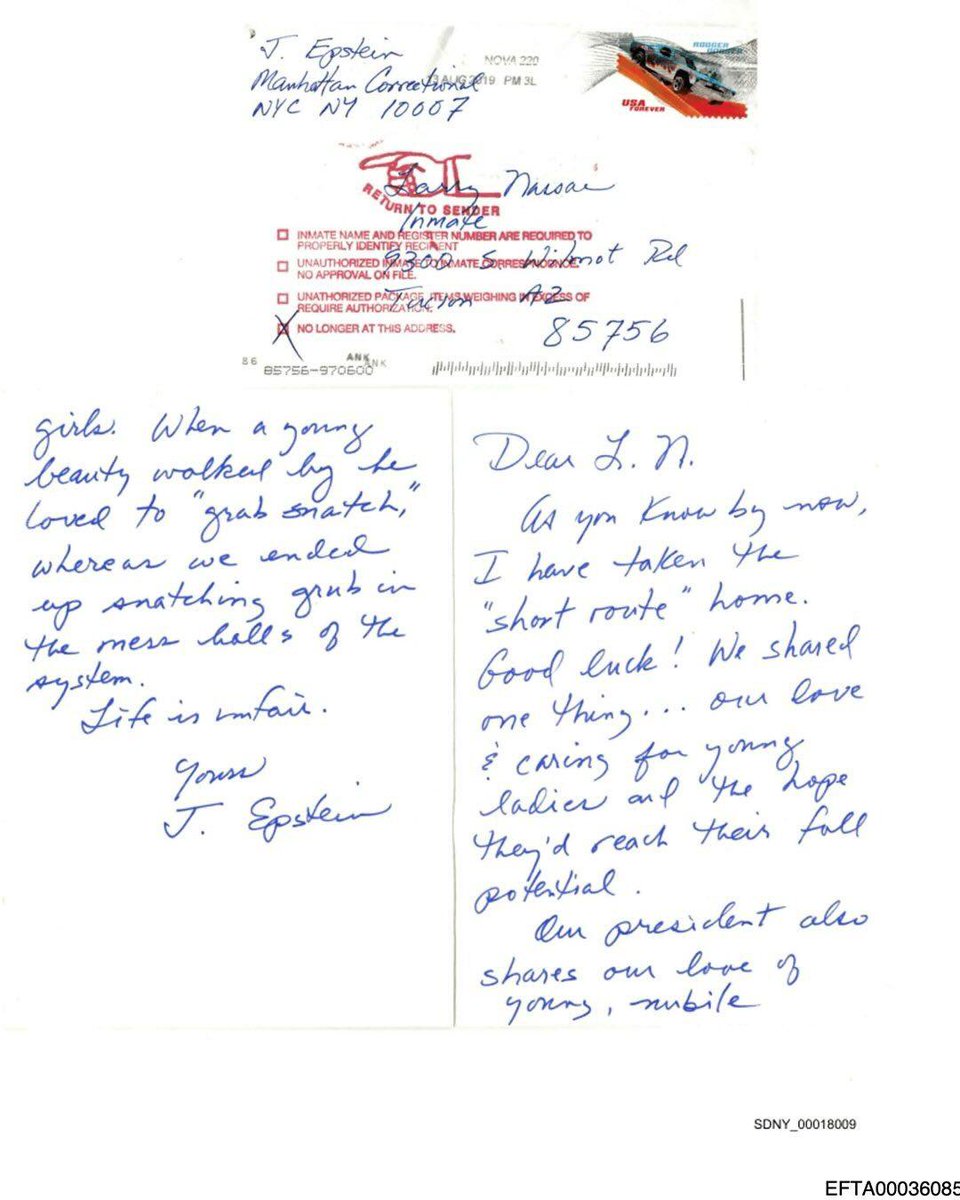 J. Epstein
Manhattan Correctional
NYC NY 10007
NOVA 220
AUG 2019 PM 3L
USA
FOREVER
Larry Nassar
Inmate
9300 S. Wilmot Rd
Tucson AZ
85756
RETURN TO SENDER
INMATE NAME AND REGISTER NUMBER ARE REQUIRED TO
PROPERLY IDENTIFY RECIPIENT
UNAUTHORIZED INMATE TO INMATE CORRESPONDENCE.
NO APPROVAL ON FILE.
UNATHORIZED PACKAGE, ITEMS WEIGHING IN EXCESS OF
REQUIRE AUTHORIZATION.
NO LONGER AT THIS ADDRESS.
86
ANK
ANK
85756-970600
Dear L. N.
As you know by now,
I have taken the
"short route" home.
Good luck! We shared
one thing... our love
& caring for young
ladies and the hope
they'd reach their full
potential.
Our president also
shares our love of
young, nubile
girls. When a young
beauty walked by he
loved to "grab snatch,"
whereas we ended
up snatching grub in
the mess halls of the
system.
Life is unfair.
Yours
J. Epstein
SDNY_00018009
EFTA00036085